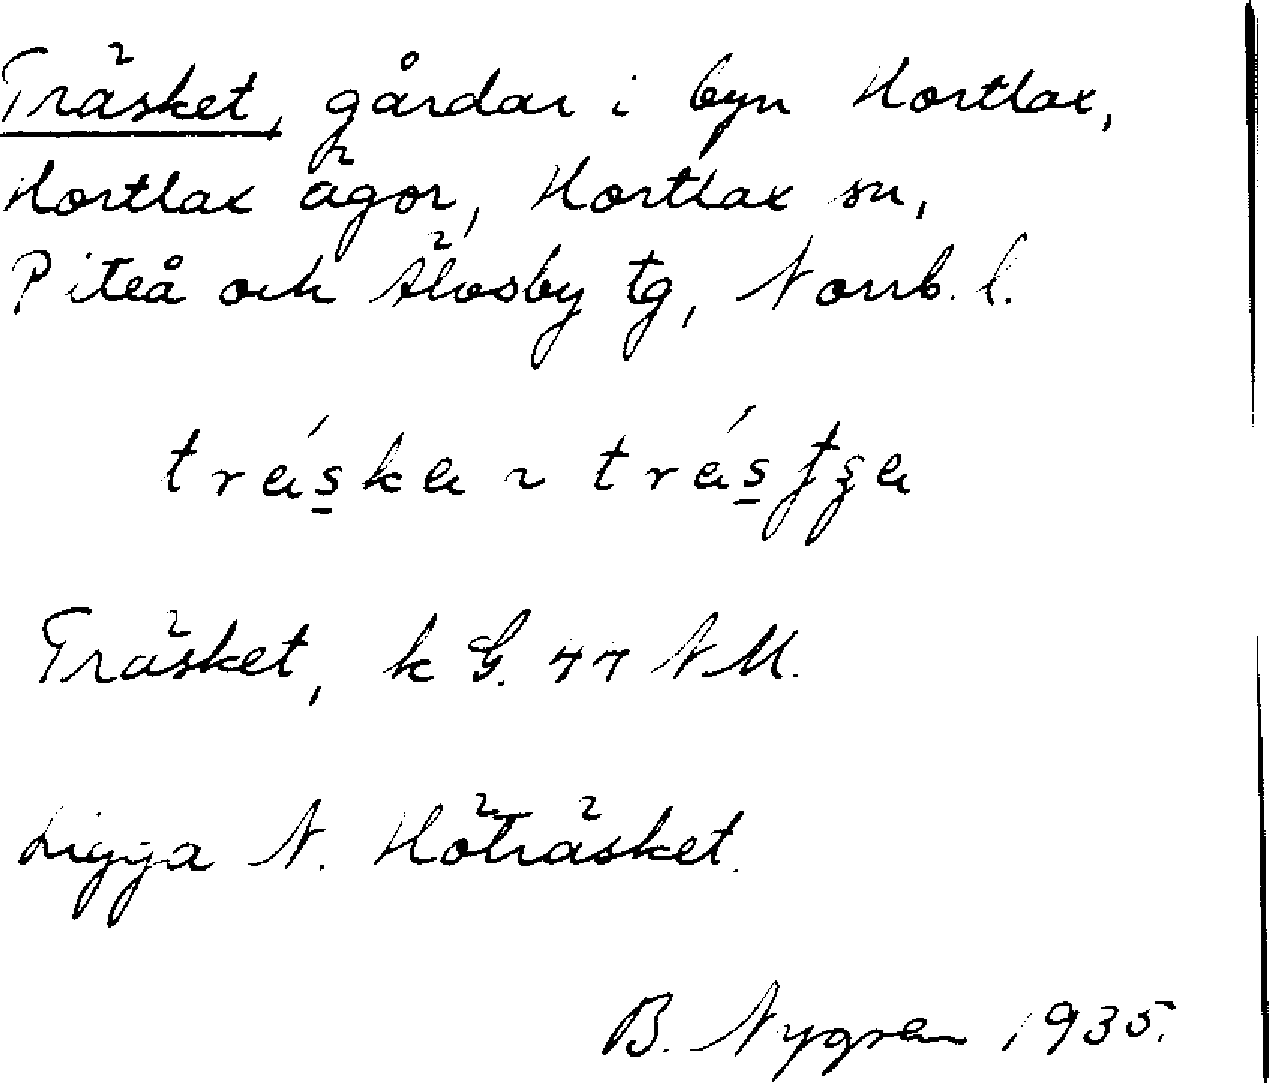 Träsket, gårdar i byn Hortlax,
Hortlax ägor, Hortlax sn,
Piteå och Älvsby tg, Norrb. l.
Träsket, k G. 47 NM.
Ligga N. Höträsket.
B. Nygren 1935.